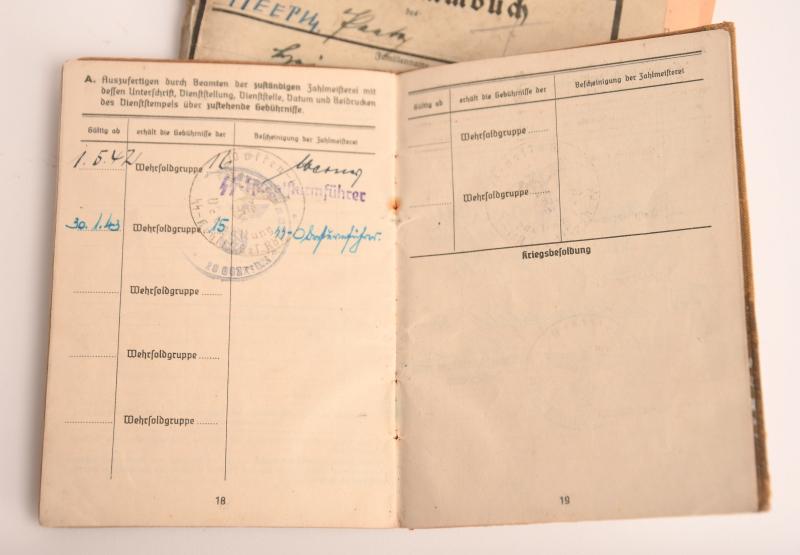 A. Auszufertigen durch Beamten der zuständigen Zahlmeisterei mit
dessen Unterschrift, Dienststellung, Dienststelle, Datum und Beidrucken
des Dienststempels über zustehende Gebührnisse.
Gültig ab
erhält die Gebührnisse der
Bescheinigung der Zahlmeisterei
1.5.42
Wehrsoldgruppe 16
30.1.43
Wehrsoldgruppe 15
SS-Obersturmführer.
Wehrsoldgruppe
Wehrsoldgruppe
Wehrsoldgruppe
18
Gültig ab
erhält die Gebührnisse der
Bescheinigung der Zahlmeisterei
Wehrsoldgruppe
Wehrsoldgruppe
Kriegsbesoldung
19